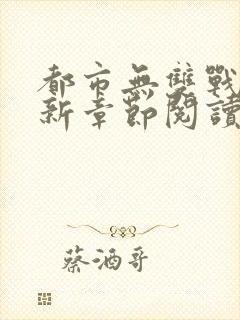 都市無雙戰
新章節閱讀
蔡酒哥